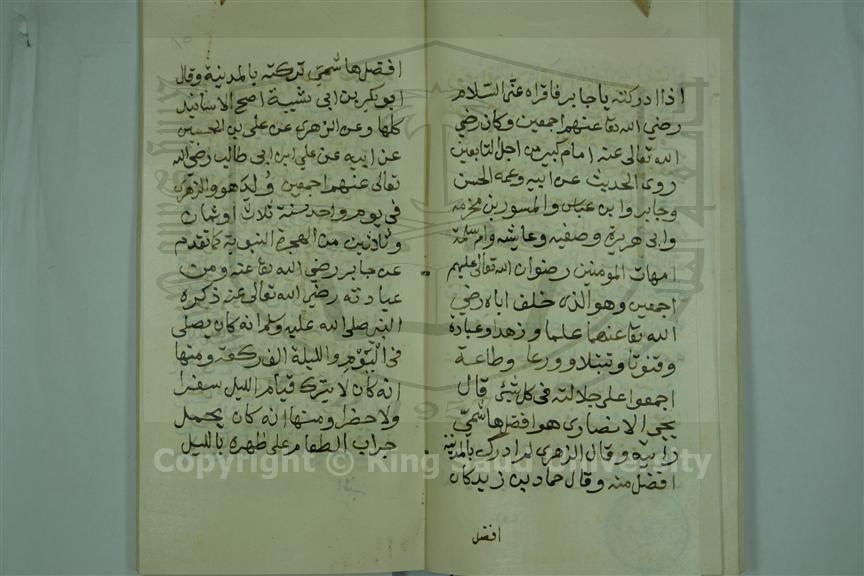 اذا ادركته يا جابر فاقراه عنّى السّلام
رضي الله تعا عنهم اجمعين وكان رضي
الله تعالى عنه امام كبير من اجل التابعين
روى الحديث عن ابيه وعمه الحسن
وجابر وابن عباس والمسور بن مخرمه
وابى هريرة وصفيه وعايشه وام سلمة
امهات المومنين رضوان الله تعالى عليهم
اجمعين وهو الذى خلف اباه رضي
الله تعا عنهما علما وزهدا وعبادة
وقنوتا وتبتلا وورعا وطاعة
اجمعوا على جلالته فى كل شئ قال
يحيى الانصارى هو افضل هاشميّ
رايته وقال الزهرى لم ادرك بالمدينة
افضل منه وقال حماد بن زيد كان
افضل
افضل هاشميّ تركته بالمدينة وقال
ابو بكر بن ابى شيبة اصح الاسانيد
كلها وعن الزهرى عن على بن الحسين
عن ابيه عن علي ابن ابى طالب رضي الله
تعالى عنهم اجمعين وُلِدَ هو والزهرى
فى يوم واحد سنة ثلاث او ثمان
وثلاثين من الهجرة النبوية كما تقدم
عن جابر رضي الله تعا عنه ومن
عبادته رضي الله تعالى عنه ذكره
النبى صلى الله عليه وسلم انه كان يصلى
فى اليَوْمِ والليلة الف ركعة ومنها
انه كان لا يترك قيام الليل سفرا
ولا حضرا ومنها انه كان يحمل
جراب الطعام على ظهره بالليل
Copyright © King Saud University